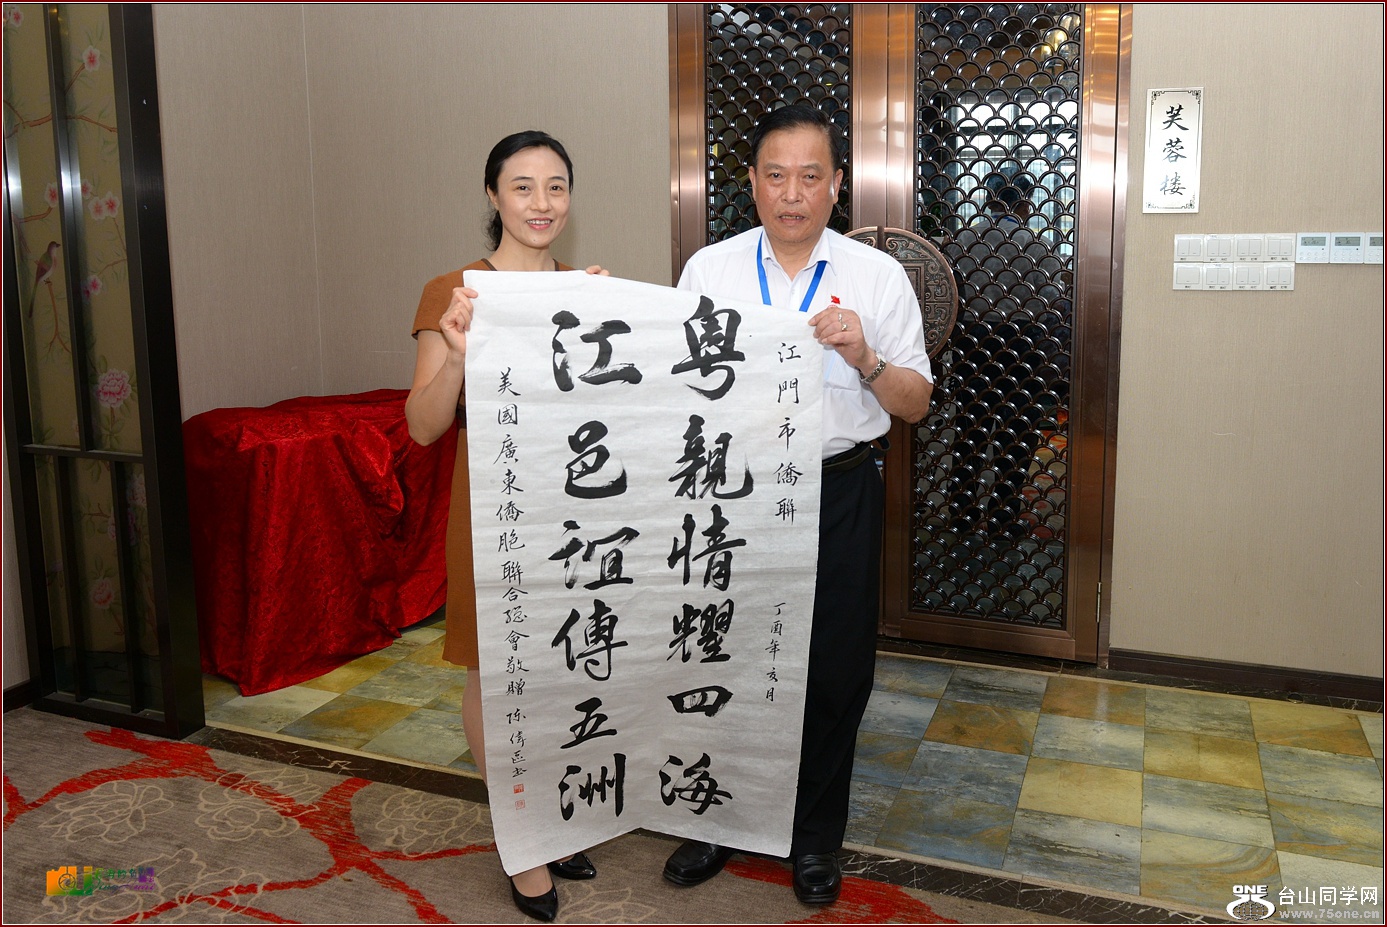 江門市僑聯
丁酉年亥月
粵親情耀四海
江邑誼傳五洲
美國廣東僑胞聯合總會敬贈
芙蓉楼
ONE
台山同学网
www.75one.cn